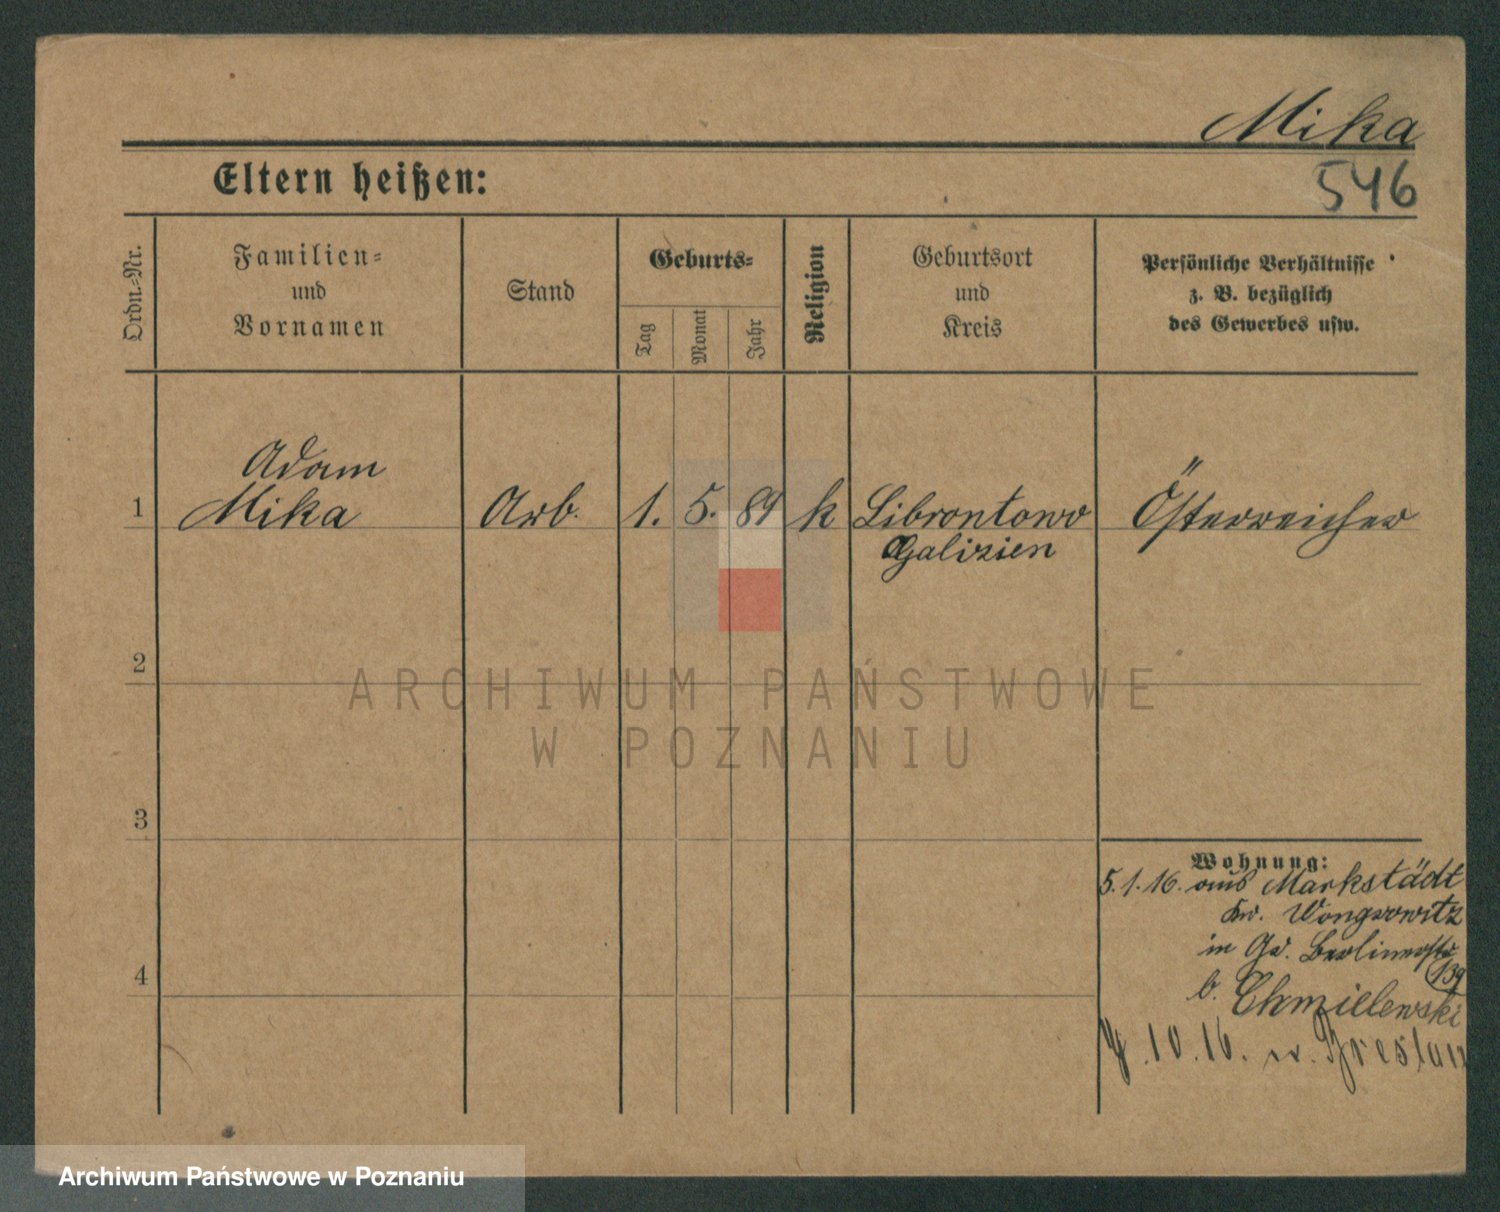 Mika
546
Eltern heißen:
Ordn.-Nr.
Familien- und Vornamen
Stand
Geburts-
Tag
Monat
Jahr
Religion
Geburtsort und Kreis
Persönliche Verhältnisse z. B. bezüglich des Gewerbes usw.
Adam
1 Mika Arb. 1. 5. 89 k Librontowo Österreicher
Galizien
2
ARCHIWUM PAŃSTWOWE
W POZNANIU
3
Wohnung:
5.1.16. aus Markstädt
Kr. Wongrowitz
in Gr. Berlinerstr
139
4
b. Chmielewski
10.16. n. Breslau
Archiwum Państwowe w Poznaniu